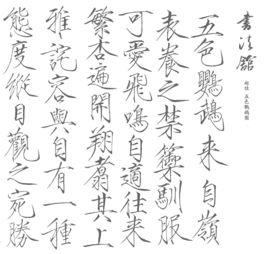 書法館
趙佶 五色鸚鵡圖
五色鸚鵡來自嶺
表養之禁籞馴服
可愛飛鳴自適往来
繁杏遍開翔翥其上
雅詫容與自有一種
態度縱目觀之宛勝